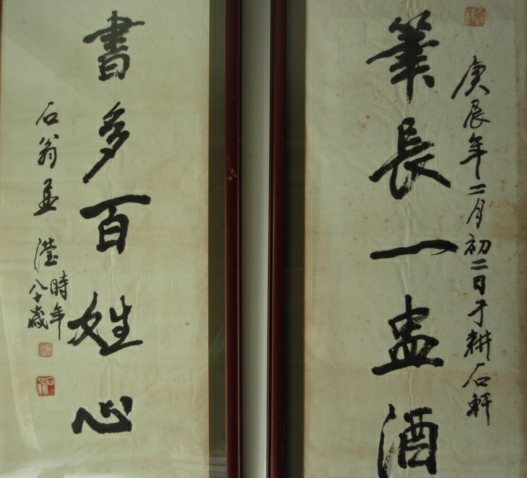 庚辰年二月初二日于耕石轩
筆長一盅酒
書多百姓心
石翁孟瀅時年
八十歲